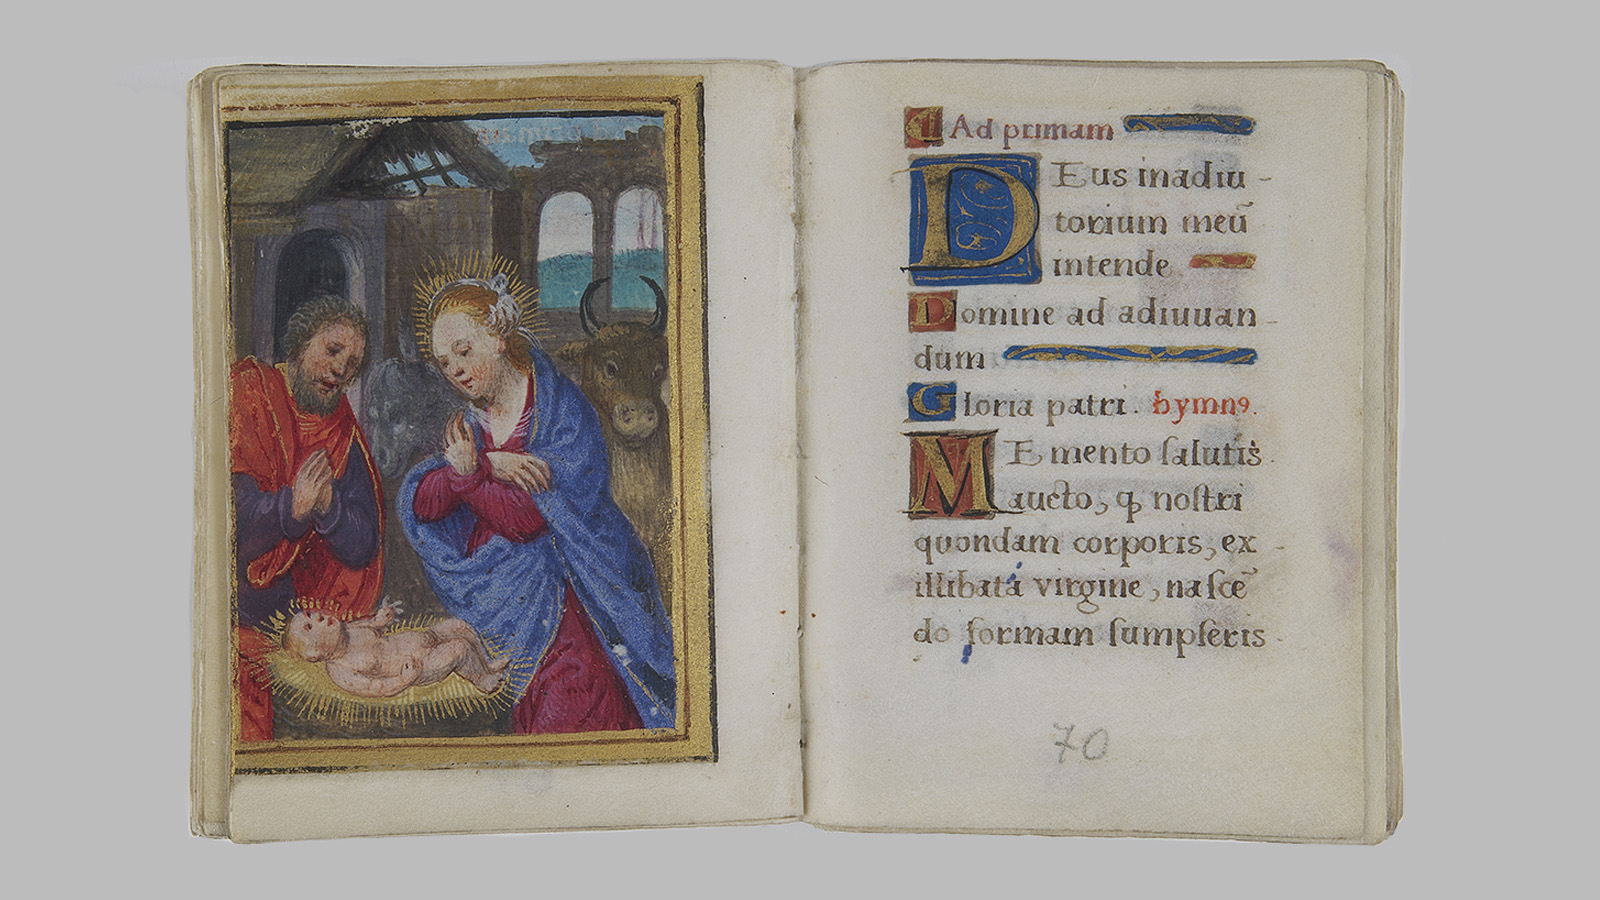 Ad primam
DEus in adiu-
torium meū
intende
Domine ad adiuuan-
dum
Gloria patri. hymnꝰ.
MEmento salutis
aucto, ꝙ nostri
quondam corporis, ex-
illibata virgine, nascē
do formam sumpseris
70